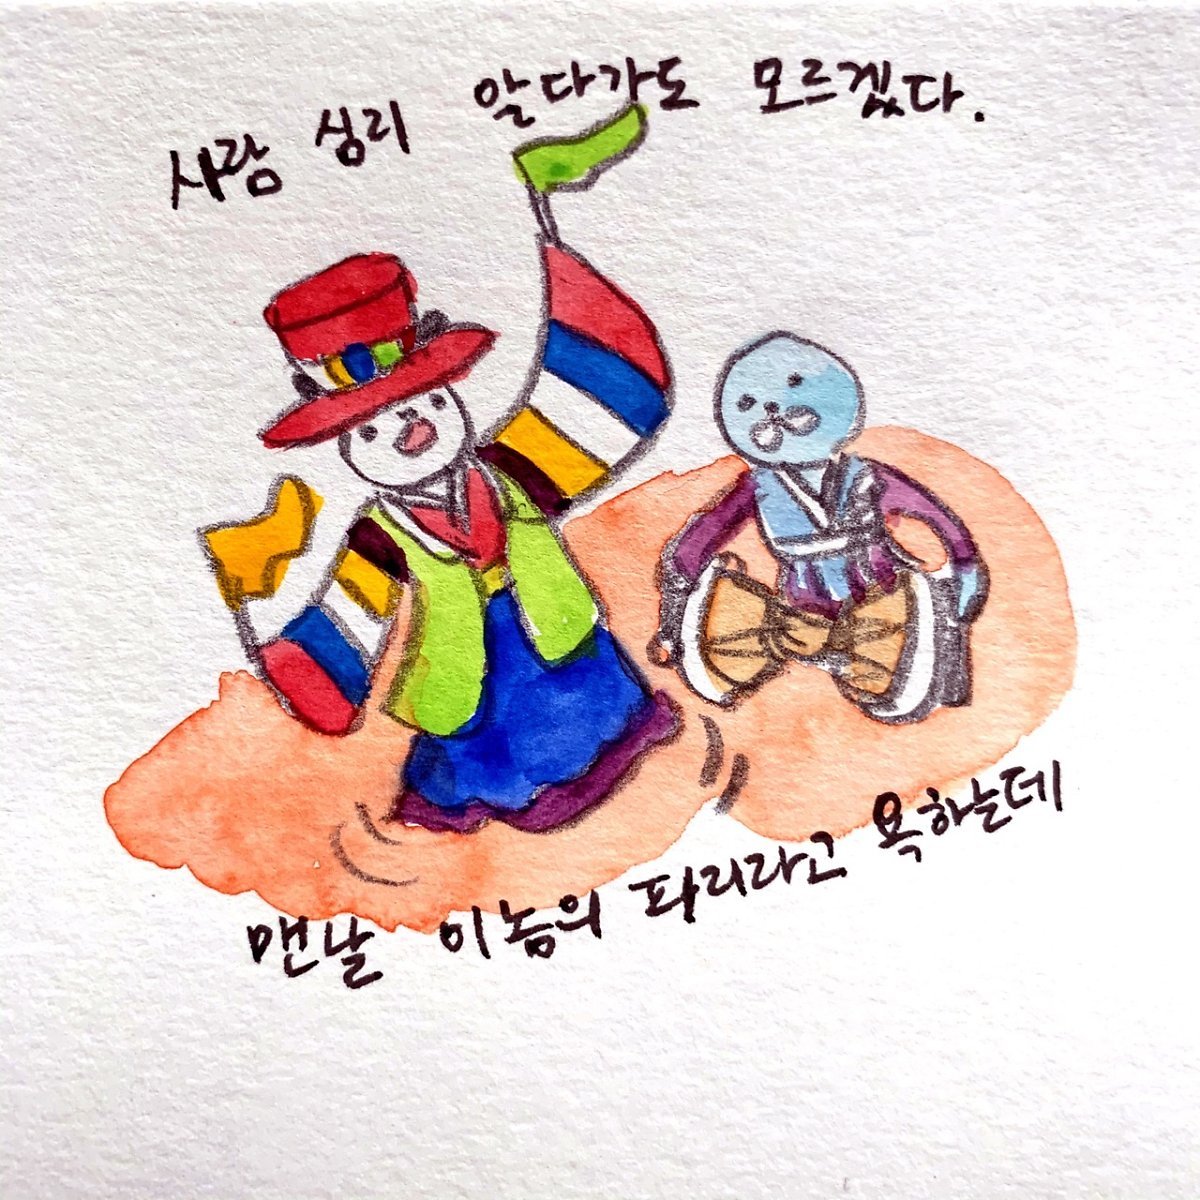 사람 심리 알다가도 모르겠다.
맨날 이놈의 파리라고 욕하는데